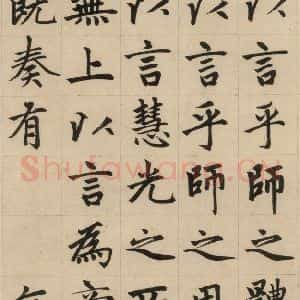 以言乎師之體
以言乎師之用
以言慧光之
無上以言為
既奏有
Shufawang.cn